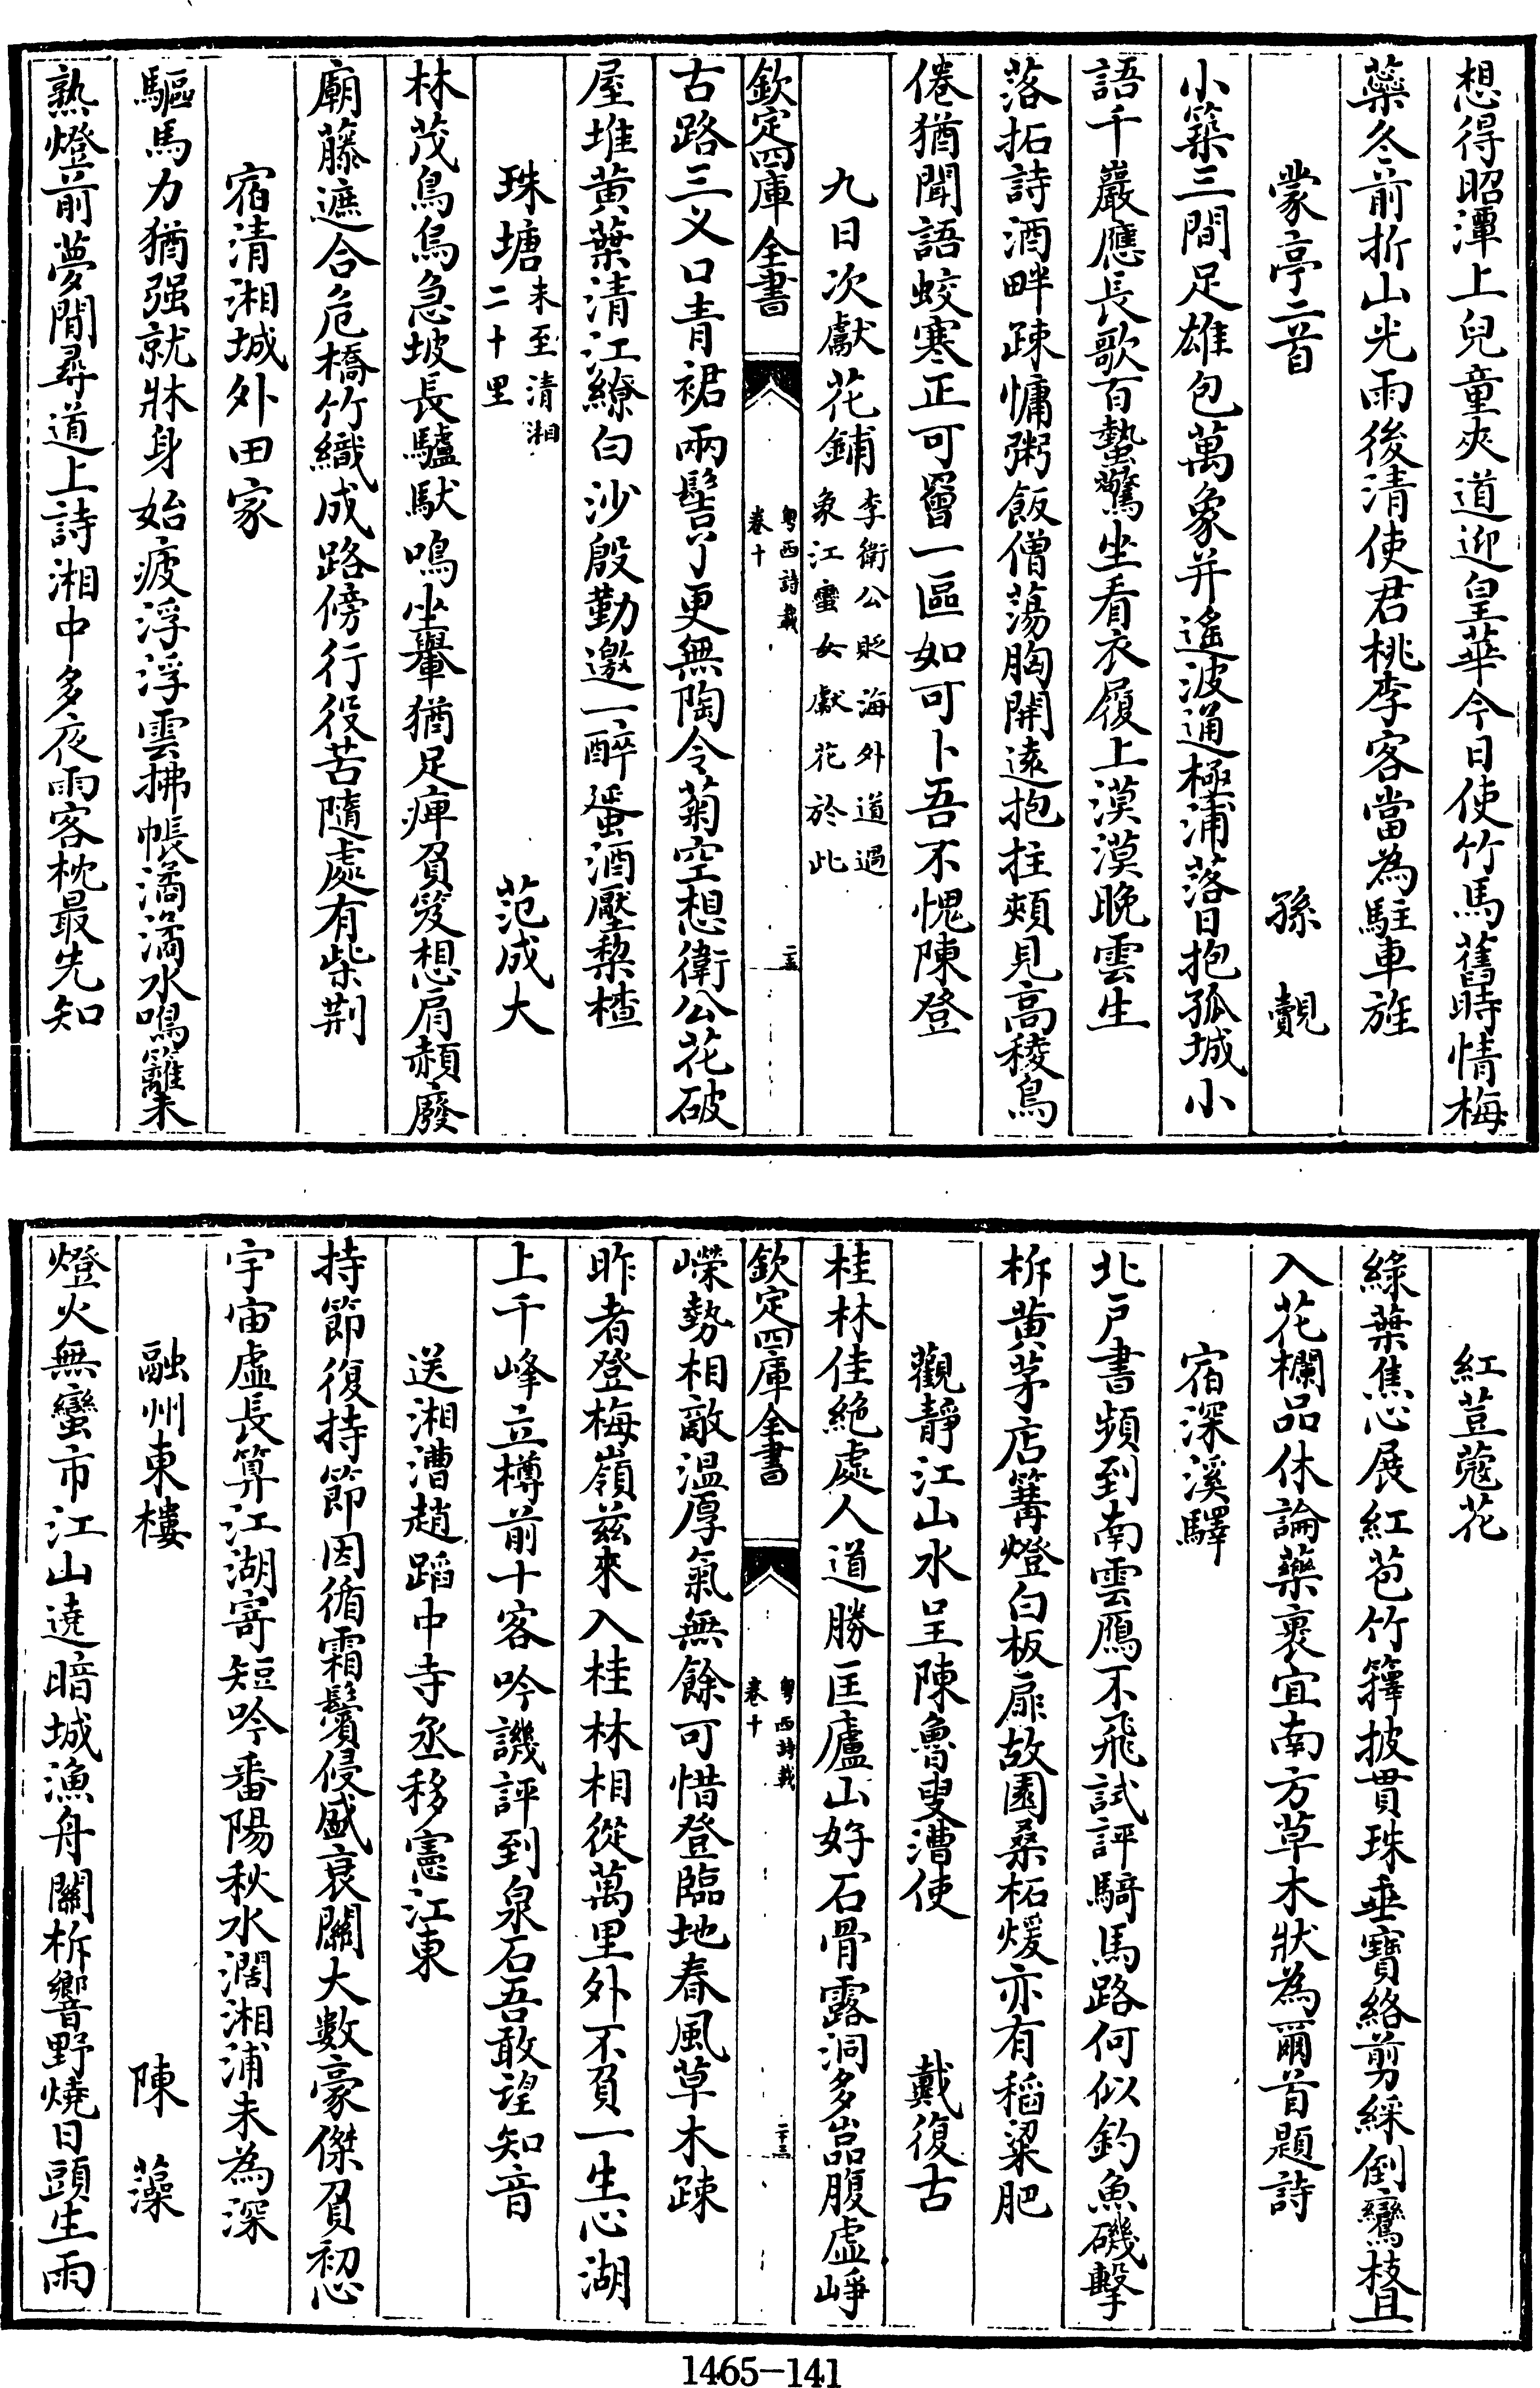 想得昭潭上兒童夾道迎皇華今日使竹馬舊時情梅
蘂冬前折山光雨後清使君桃李客當為駐車旌
蒙亭二首　孫覿
小築三間足雄包萬象并遙波通極浦落日抱孤城小
語千巖應長歌百蟄驚坐看衣履上漠漠晚雲生
落拓詩酒畔疎慵粥飯僧蕩胸開遠抱拄頰見高稜鳥
倦猶聞語蛟寒正可罾一區如可卜吾不愧陳登
九日次獻花鋪李衛公貶海外道過象江蠻女獻花於此
欽定四庫全書　粵西詩載卷十　二十五
古路三义口青裙兩髻丫更無陶令菊空想衛公花破
屋堆黃葉清江繚白沙殷勤邀一醉蜑酒壓棃楂
珠塘未至清湘二十里　范成大
林茂鳥烏急坡長驢馱鳴坐轝猶足痺負笈想肩頳廢
廟藤遮合危橋竹織成路傍行役苦隨處有柴荆
宿清湘城外田家
驅馬力猶强就牀身始疲浮浮雲拂帳潏潏水鳴籬未
熟燈前夢閒尋道上詩湘中多夜雨客枕最先知
紅荳蔻花
綠葉焦心展紅苞竹籜披貫珠垂寶絡剪綵倒鸞枝且
入花欄品休論藥裹宜南方草木狀為爾首題詩
宿深溪驛
北戶書頻到南雲鴈不飛試評騎馬路何似釣魚磯擊
柝黃茅店篝燈白板扉故園桑柘煖亦有稻粱肥
觀靜江山水呈陳魯叟漕使　戴復古
桂林佳絕處人道勝匡廬山好石骨露洞多嵓腹虛崢
欽定四庫全書　粵西詩載卷十　二十六
嶸勢相敵溫厚氣無餘可惜登臨地春風草木疎
昨者登梅嶺兹來入桂林相從萬里外不負一生心湖
上千峰立樽前十客吟譏評到泉石吾敢望知音
送湘漕趙蹈中寺丞移憲江東
持節復持節因循霜鬢侵盛衰關大數豪傑負初心
宇宙虛長算江湖寄短吟番陽秋水濶湘浦未為深
融州東樓　陳藻
燈火無蠻市江山遶暗城漁舟關柝響野燒日頭生雨
1465-141